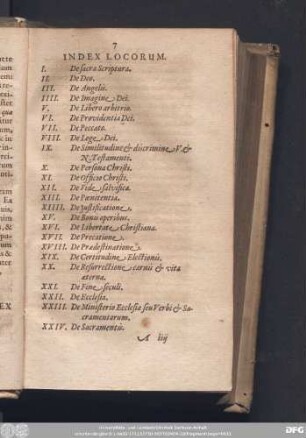 7
INDEX LOCORUM.
I. De sacra Scriptura.
II. De Deo.
III. De Angelis.
IIII. De Imagine Dei.
V. De Libero arbitrio.
VI. De Providentia Dei.
VII. De Peccato.
VIII. De Lege Dei.
IX. De Similitudine & discrimine V. &
N. Testamenti.
X. De Persona Christi.
XI. De Officio Christi.
XII. De Fide salvifica.
XIII. De Pœnitentia.
XIIII. De Justificatione.
XV. De Bonis operibus.
XVI. De Libertate Christiana.
XVII. De Precatione.
XVIII. De Prædestinatione.
XIX. De Certitudine Electionis.
XX. De Resurrectione carnis & vita
æterna.
XXI. De Fine seculi.
XXII. De Ecclesia.
XXIII. De Ministerio Ecclesiæ seu Verbi & Sa-
cramentorum.
XXIV. De Sacramentis.
A iiij
EX
DFG